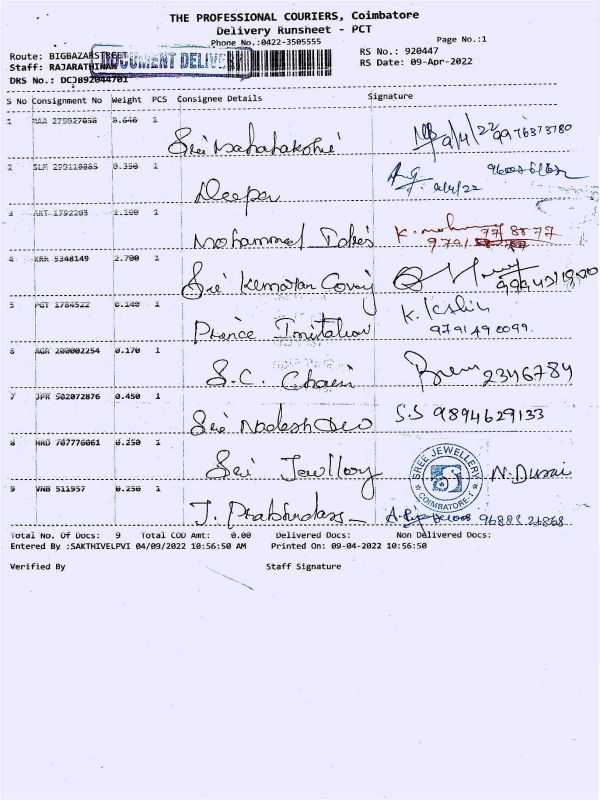 THE PROFESSIONAL COURIERS, Coimbatore
Delivery Runsheet - PCT
Phone No.:0422-3505555
Page No.:1
Route: BIGBAZARSTREET
RS No.: 920447
Staff: RAJARATHINAM
DOCUMENT DELIVERY
RS Date: 09-Apr-2022
DRS No.: DCJB92044701
S No Consignment No Weight PCS Consignee Details Signature
1 MAA 275927058 0.640 1
9/4/22 9976373780
2 SLM 1
Deepa
9/4/22
3 ART 1792203 1
Mohammed
K.
77/88 77
9791
4 KRR 5348149 2.700 1
Sri
5 PGT 1784522 0.140 1
Prince Imitation
K.
9791490099.
6 AGR 200002254 0.170 1
S.C. Chain
2346784
7 JPR 502072876 0.450 1
Sri
S.S 9894629133
8 HRD 707776061 0.250 1
Sri Jewllory
SREE JEWELLERY
SJ
COIMBATORE-1
N. Durai
9 VNB 511957 0.250 1
J. Prabhudass
96888 26868
Total No. Of Docs: 9 Total COD Amt: 0.00 Delivered Docs: Non Delivered Docs:
Entered By :SAKTHIVELPVI 04/09/2022 10:56:50 AM Printed On: 09-04-2022 10:56:50
Verified By Staff Signature